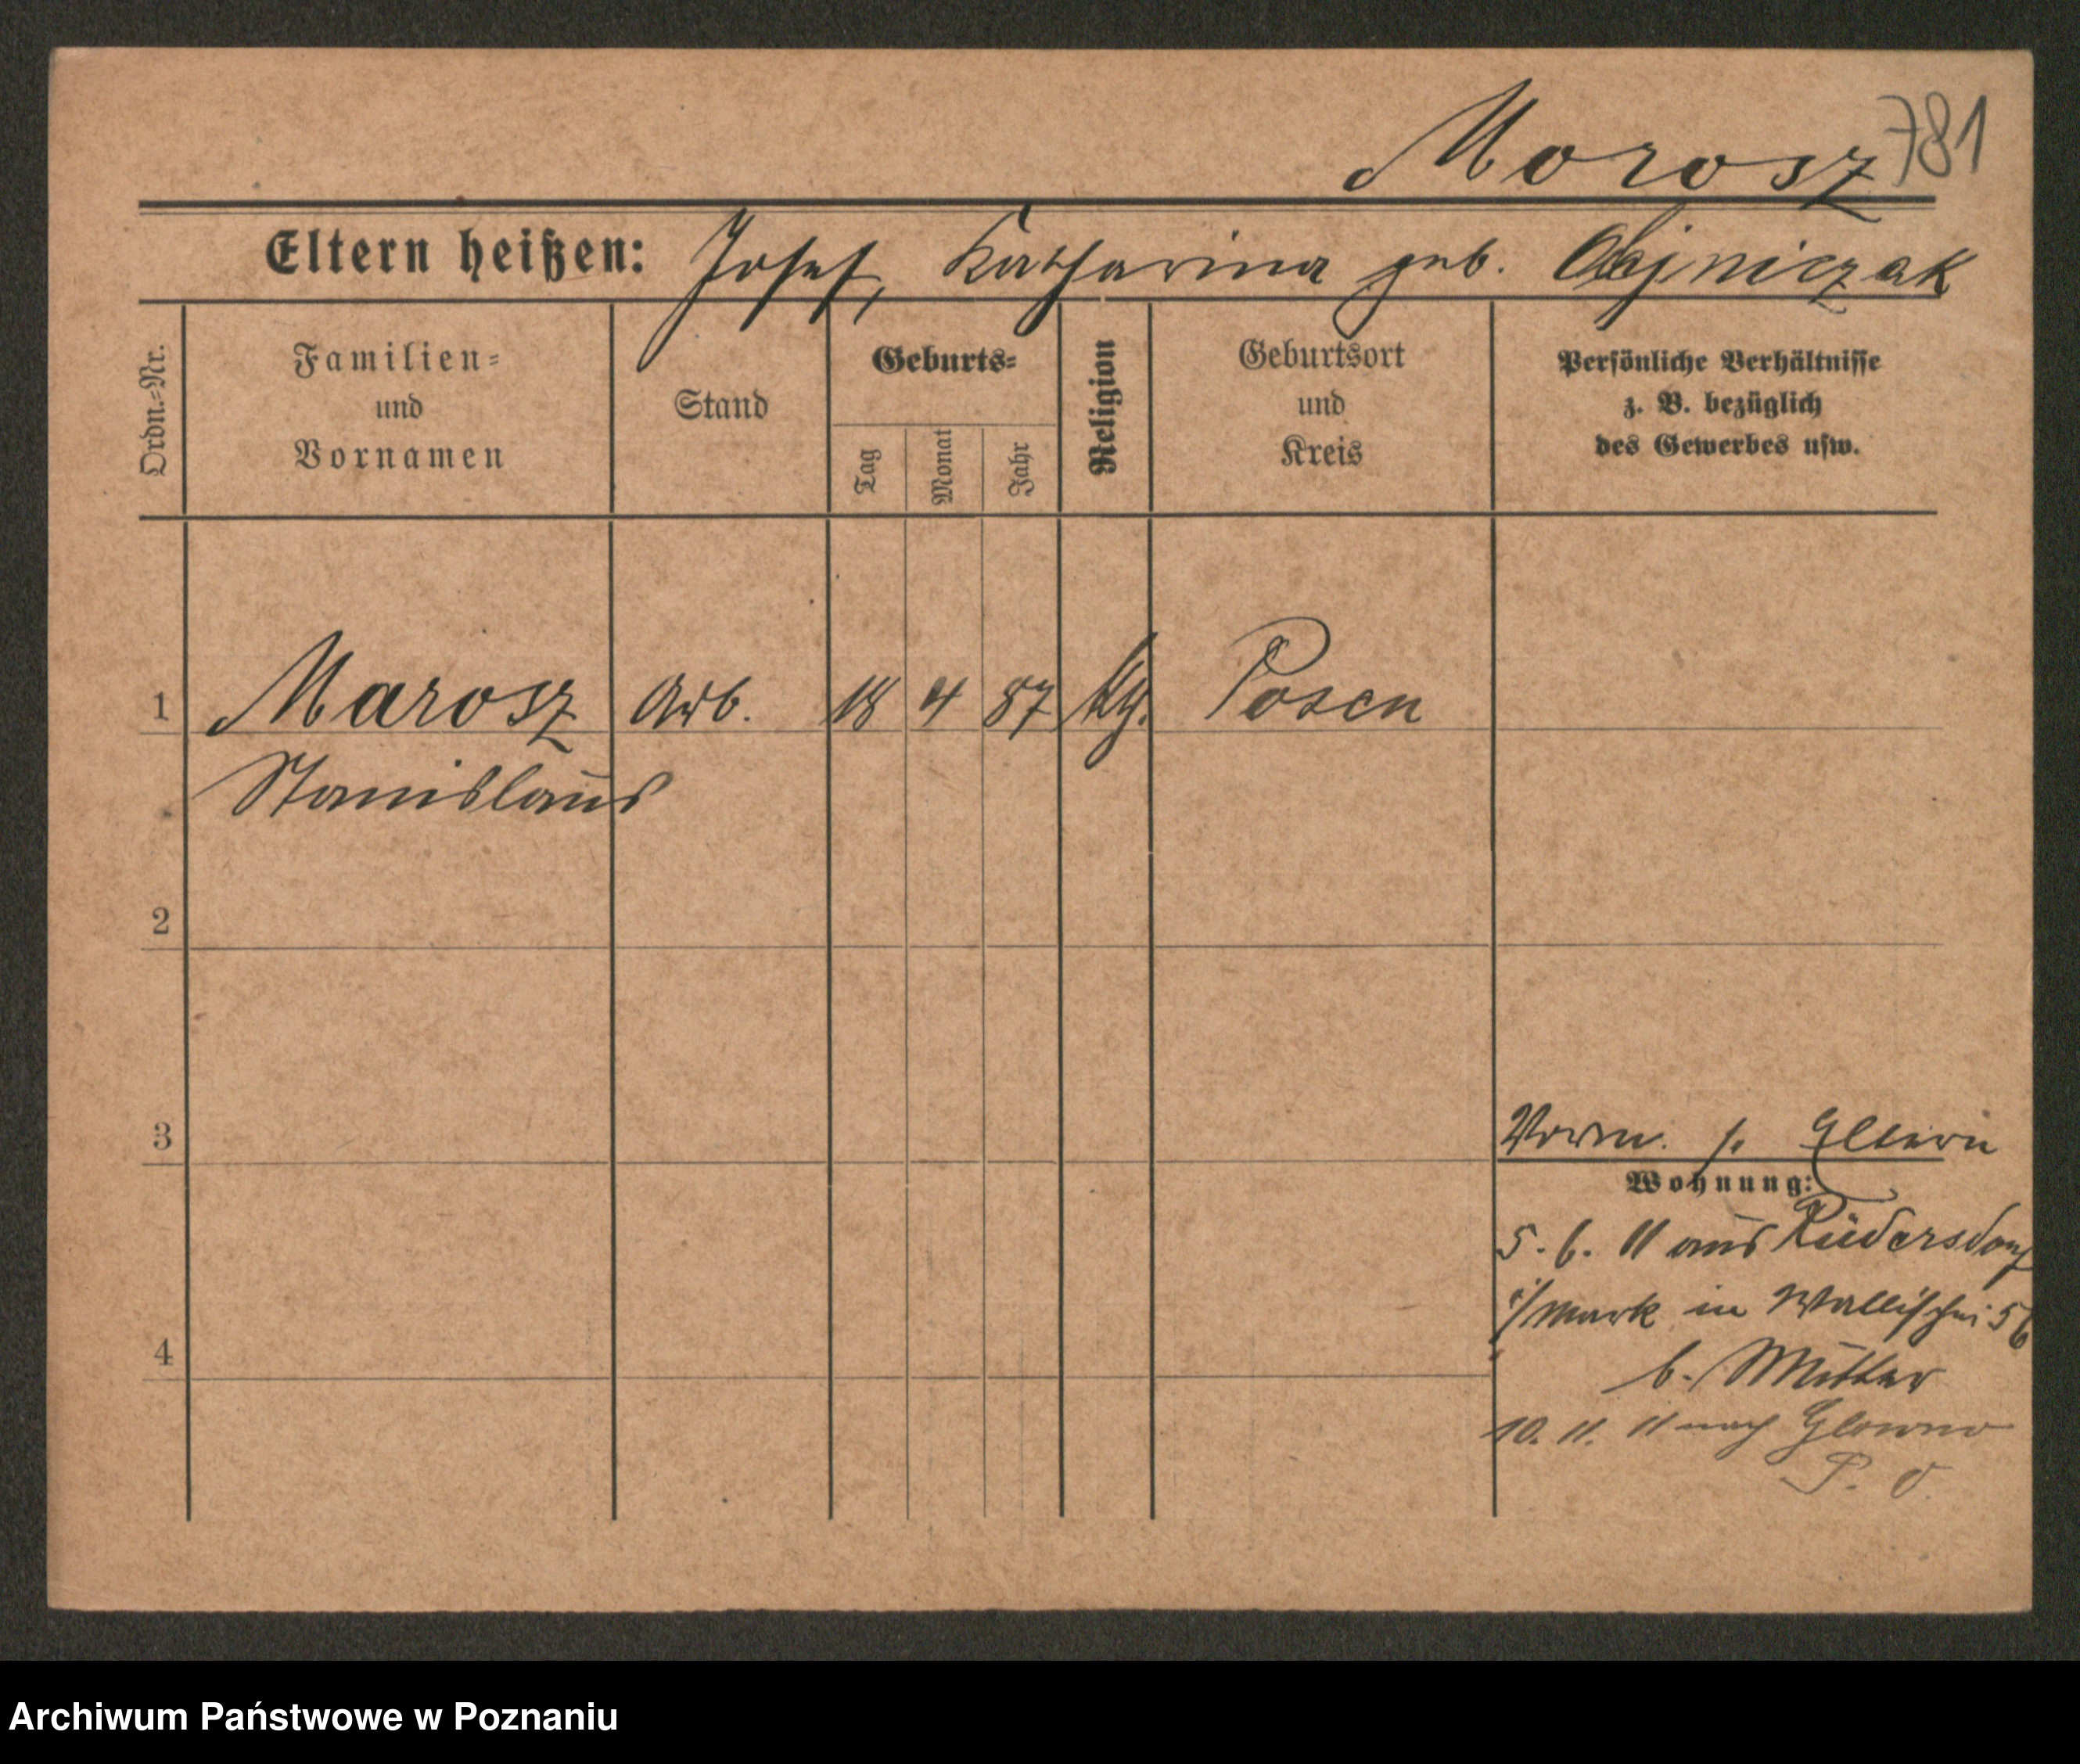 Morosz 781
Eltern heißen: Josef, Katharina geb. Olejniczak
Ordn.-Nr.
Familien-
und
Vornamen
Stand
Geburts-
Tag
Monat
Jahr
Religion
Geburtsort
und
Kreis
Persönliche Verhältnisse
z. B. bezüglich
des Gewerbes usw.
1 Marosz Arb. 18 4 87 kth. Posen
Stanislaus
2
3
Vorm. s. Eltern
Wohnung:
5. 6. 11 aus Rüdersdorf
i/Mark in Wallischei 56
4
b. Mutter
10. 11. 11 nach Glowno
P. O.
Archiwum Państwowe w Poznaniu